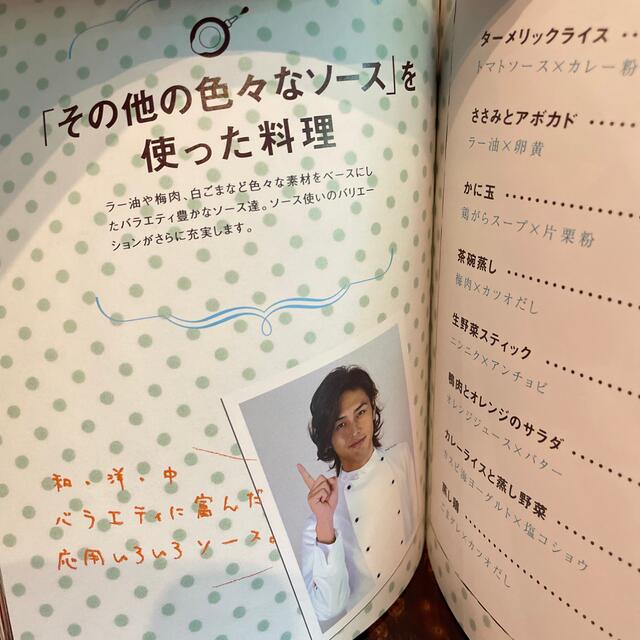 「その他の色々なソース」を
使った料理
ラー油や梅肉、白ごまなど色々な素材をベースにし
たバラエティ豊かなソース達。ソース使いのバリエー
ションがさらに充実します。
和・洋・中
バラエティに富んだ
応用いろいろソース。
ターメリックライス
トマトソース×カレー粉
ささみとアボカド
ラー油×卵黄
かに玉
鶏がらスープ×片栗粉
茶碗蒸し
梅肉×カツオだし
生野菜スティック
ニンニク×アンチョビ
鴨肉とオレンジのサラダ
オレンジジュース×バター
カレーライスと蒸し野菜
カスピ海ヨーグルト×塩コショウ
蒸し鶏
ごまダレ×カツオだし